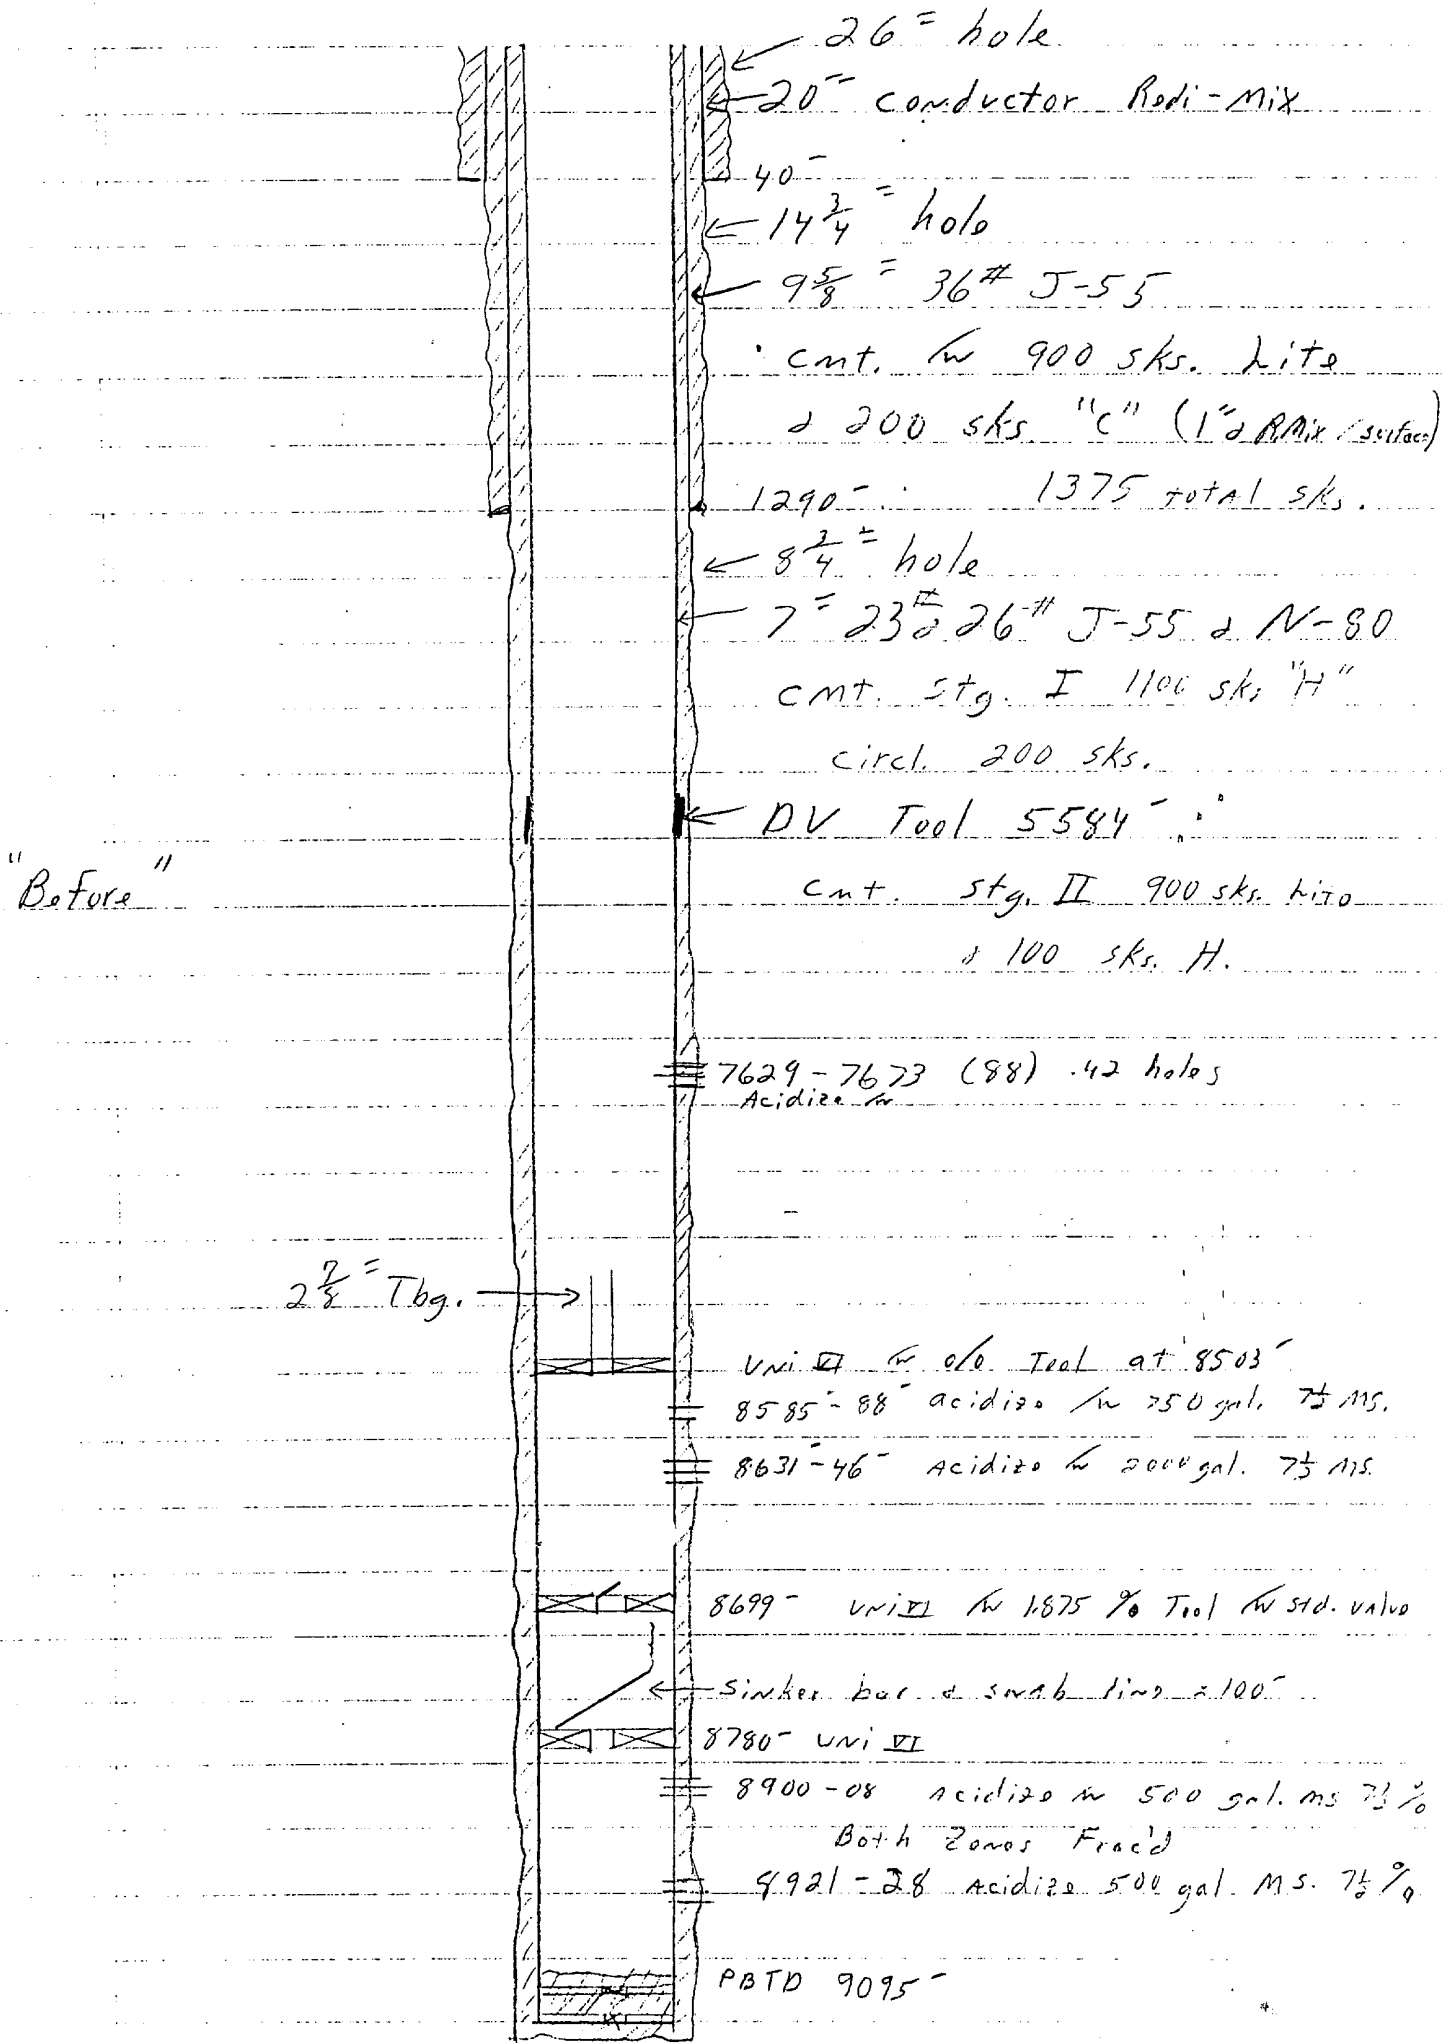 26" hole
20" conductor Redi-Mix
40'
14 3/4" hole
9 5/8" 36# J-55
cmt. /w 900 sks. Lite
& 200 sks "C" (1" & R.Mix / surface)
1290' 1375 total sks.
8 3/4" hole
7" 23# & 26# J-55 & N-80
cmt. stg. I 1100 sks "H"
circl. 200 sks.
DV Tool 5584'
"Before"
cmt. stg. II 900 sks. Lite
& 100 sks. H.
7629-7673 (88) .42 holes
Acidize /w
2 7/8" Tbg.
Uni VI /w o/o Tool at 8503'
8585'-88' acidize /w 750 gal. 7 1/2 MS.
8631'-46' Acidize /w 2000 gal. 7 1/2 MS.
8699' Uni VI /w 1.875 o/o Tool /w std. valve
Sinker bar & swab line ≈ 100'
8780' Uni VI
8900-08 Acidize /w 500 gal. MS 7 1/2 %
Both Zones Frac'd
8921-28 Acidize 500 gal. MS. 7 1/2 %
PBTD 9095'